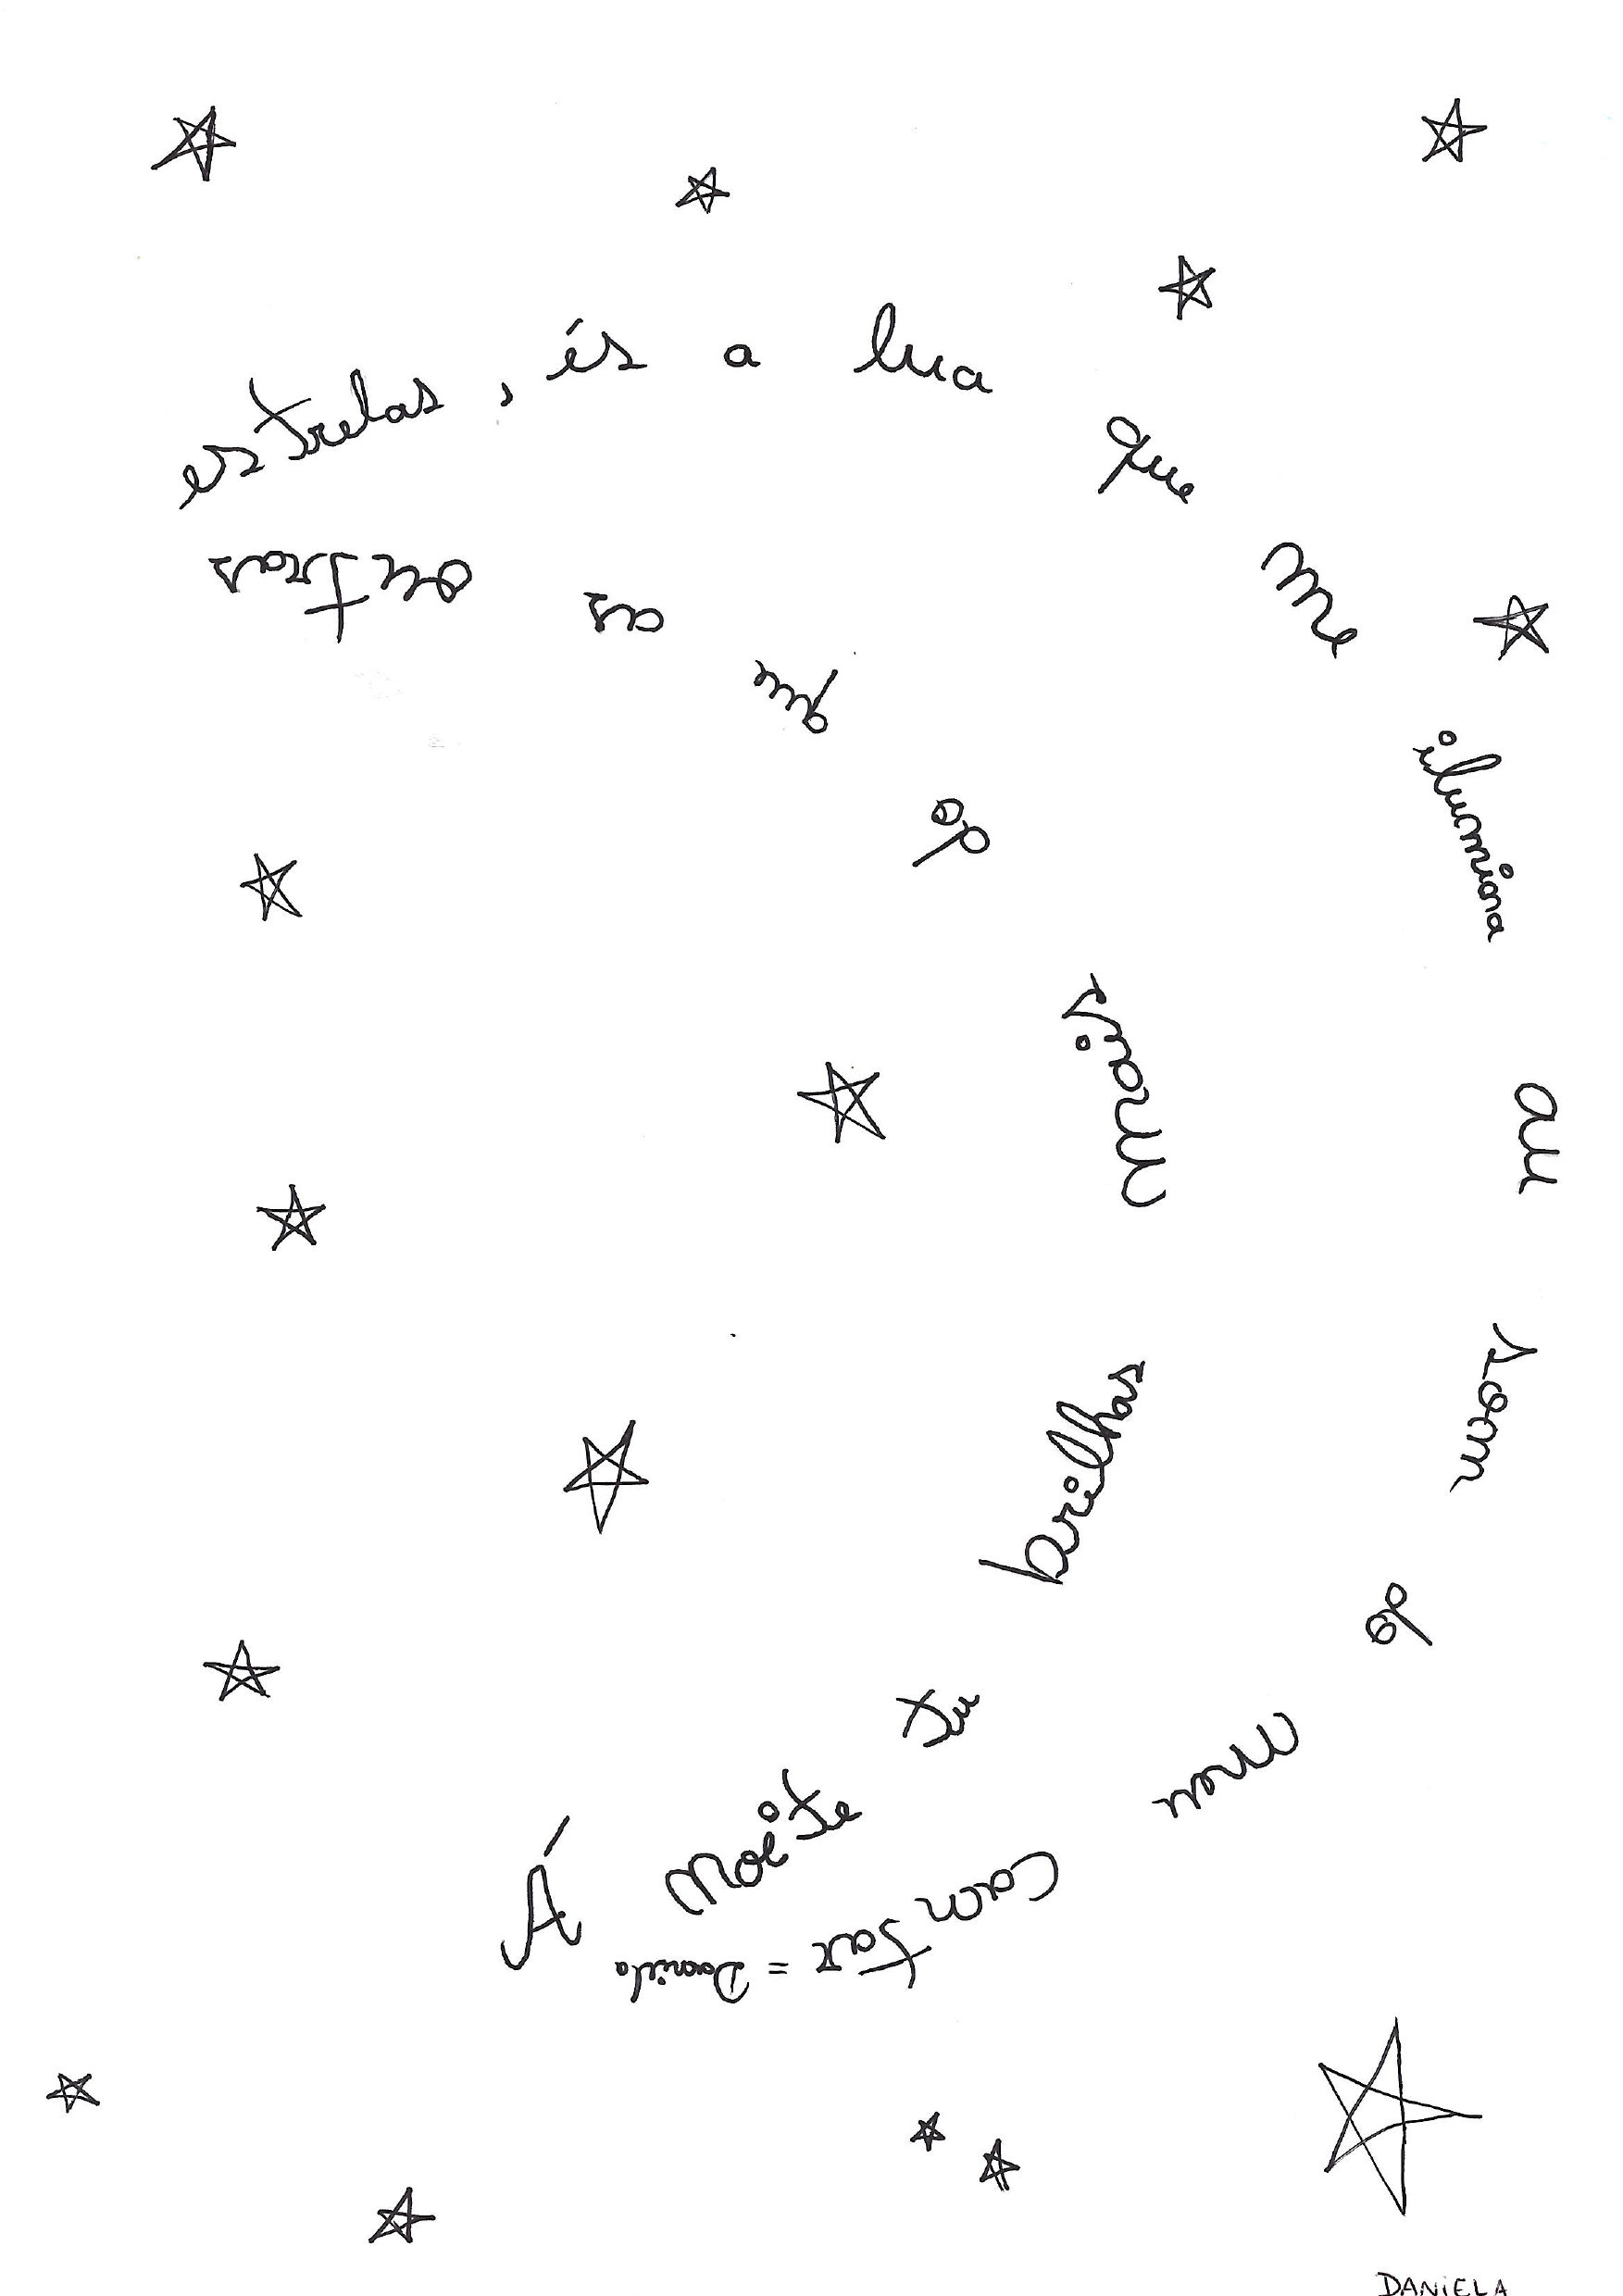 Á Noite tu brilhas mais do que as outras
estrelas, és a lua que me ilumina au som do meu Coan tar = Daniela
DANiELA